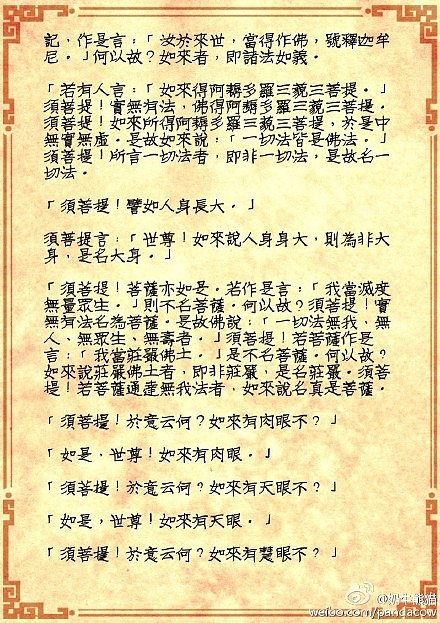 記、作是言：「汝於來世，當得作佛，號釋迦牟
尼。」何以故？如來者，即諸法如義。
「若有人言：『如來得阿耨多羅三藐三菩提。』
須菩提！實無有法，佛得阿耨多羅三藐三菩提。
須菩提！如來所得阿耨多羅三藐三菩提，於是中
無實無虛。是故如來說：『一切法皆是佛法。』
須菩提！所言一切法者，即非一切法，是故名一
切法。
「須菩提！譬如人身長大。」
須菩提言：「世尊！如來說人身長大，則為非大
身，是名大身。」
「須菩提！菩薩亦如是。若作是言：『我當滅度
無量眾生。』則不名菩薩。何以故？須菩提！實
無有法名為菩薩。是故佛說：『一切法無我、無
人、無眾生、無壽者。』須菩提！若菩薩作是
言：『我當莊嚴佛土。』是不名菩薩。何以故？
如來說莊嚴佛土者，即非莊嚴，是名莊嚴。須菩
提！若菩薩通達無我法者，如來說名真是菩薩。
「須菩提！於意云何？如來有肉眼不？」
「如是，世尊！如來有肉眼。」
「須菩提！於意云何？如來有天眼不？」
「如是，世尊！如來有天眼。」
「須菩提！於意云何？如來有慧眼不？」
weibo.com/pandacow